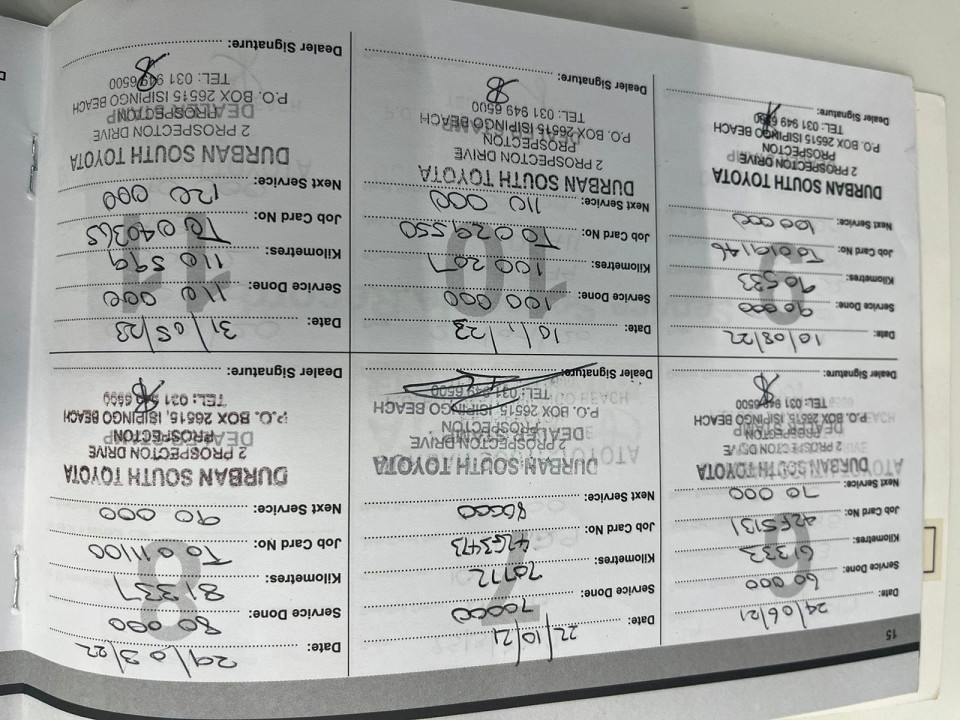 15
6
Date: 24/06/21
Service Done: 60 000
Kilometres: 61333
Job Card No: 42F5131
Next Service: 70 000
DURBAN SOUTH TOYOTA
2 PROSPECTON DRIVE
PROSPECTON
P.O. BOX 26515, ISIPINGO BEACH
TEL: 031 949 6500
DEALER STAMP
Dealer Signature:
7
Date: 22/10/21
Service Done: 70000
Kilometres: 70772
Job Card No: 42G3473
Next Service: 80000
DURBAN SOUTH TOYOTA
2 PROSPECTON DRIVE
DEALER STAMP
PROSPECTON
P.O. BOX 26515, ISIPINGO BEACH
TEL: 031 949 6500
Dealer Signature:
8
Date: 29/03/22
Service Done: 80 000
Kilometres: 81337
Job Card No: T0011100
Next Service: 90 000
DURBAN SOUTH TOYOTA
2 PROSPECTON DRIVE
PROSPECTON
DEALER STAMP
P.O. BOX 26515, ISIPINGO BEACH
TEL: 031 949 6500
Dealer Signature:
9
Date: 10/08/22
Service Done: 90000
Kilometres: 90533
Job Card No:
Next Service: 100 000
DURBAN SOUTH TOYOTA
2 PROSPECTON DRIVE
PROSPECTON
P.O. BOX 26515 ISIPINGO BEACH
TEL: 031 949 6500
Dealer Signature:
10
Date: 10/1/23
Service Done: 100 000
Kilometres: 100 207
Job Card No: T0029550
Next Service: 110 000
DURBAN SOUTH TOYOTA
2 PROSPECTON DRIVE
PROSPECTON
P.O. BOX 26515 ISIPINGO BEACH
TEL: 031 949 6500
Dealer Signature:
11
Date: 31/05/23
Service Done: 110 000
Kilometres: 110 599
Job Card No: T0040365
Next Service: 120 000
DURBAN SOUTH TOYOTA
2 PROSPECTON DRIVE
PROSPECTON
DEALER STAMP
P.O. BOX 26515 ISIPINGO BEACH
TEL: 031 949 6500
Dealer Signature: